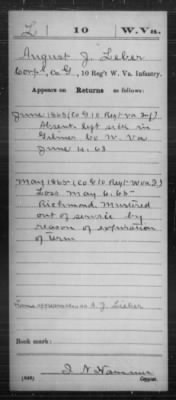 L | 10 | W. Va.
August J. Leber
Corp'l, Co. G, 10 Reg't W. Va. Infantry.
Appears on Returns as follows:
June 1863 (Co G 10 Regt Va Inf)
Absent left sick in
Gilmer Co W. Va
June 14. 63
May 1865 (Co G 10 Regt W Va I)
Loss May 6, 65
Richmond. Mustered
out of service by
reason of expiration
of term
Name appears as A. J. Lieber
Book mark:
(646)
Copyist.